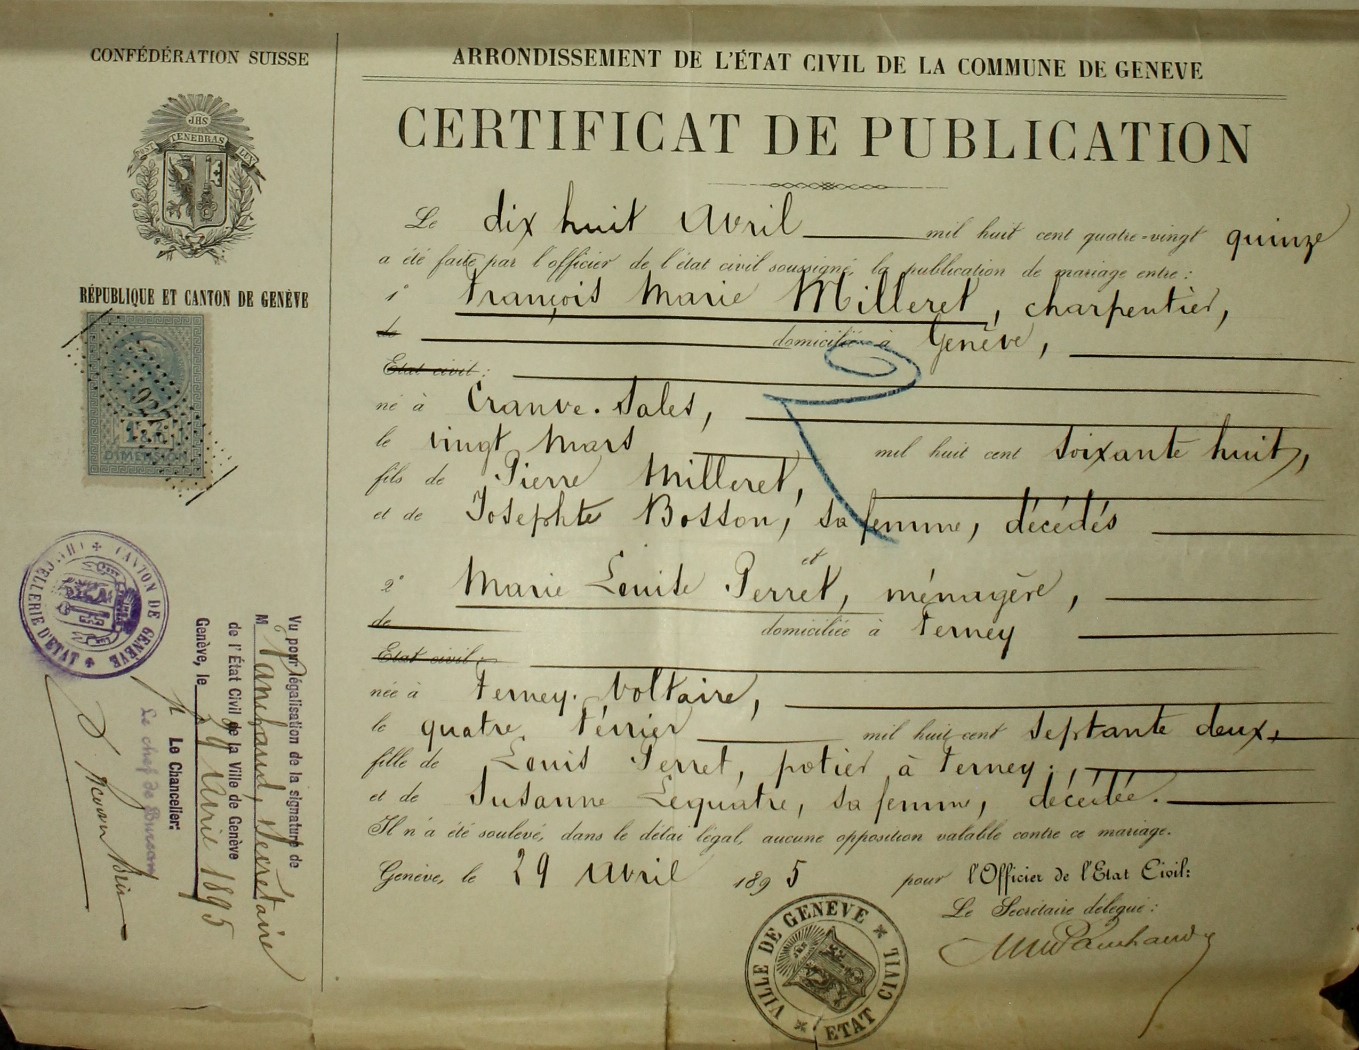 CONFÉDÉRATION SUISSE
JHS
POST TENEBRAS LUX
RÉPUBLIQUE ET CANTON DE GENÈVE
927
DIMENSION
CANTON DE GENÈVE
CHANCELLERIE D'ETAT
Vu pour légalisation de la signature de
M Panchaud, Secrétaire
de l'État Civil de la Ville de Genève
Genève, le 29 Avril 1895
p Le Chancelier:
Le chef de Bureau
ARRONDISSEMENT DE L'ÉTAT CIVIL DE LA COMMUNE DE GENEVE
CERTIFICAT DE PUBLICATION
Le dix huit Avril mil huit cent quatre-vingt quinze
a été faite par l'officier de l'état civil soussigné, la publication de mariage entre:
1° François Marie Milleret, charpentier,
de domicilié à Genève,
Etat civil:
né à Cranve-Sales,
le vingt Mars mil huit cent soixante huit,
fils de Pierre Milleret,
et de Josephte Bosson, sa femme, décédés
et
2° Marie Louise Perret, ménagère,
de domiciliée à Ferney
Etat civil:
née à Ferney-Voltaire,
le quatre Février mil huit cent septante deux,
fille de Louis Perret, potier à Ferney;
et de Susanne Lequatre, sa femme, décédée.
Il n'a été soulevé, dans le délai légal, aucune opposition valable contre ce mariage.
Genève, le 29 Avril 1895
pour l'Officier de l'Etat Civil:
Le Secrétaire délégué:
Panchaud
VILLE DE GENÈVE
ETAT CIVIL